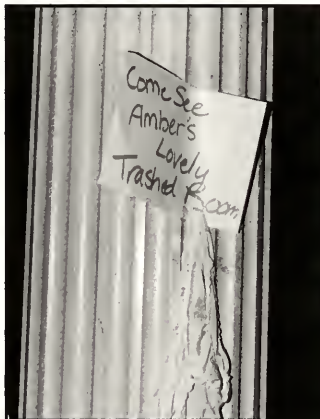 Come See
Amber's
Lovely
Trashed Room